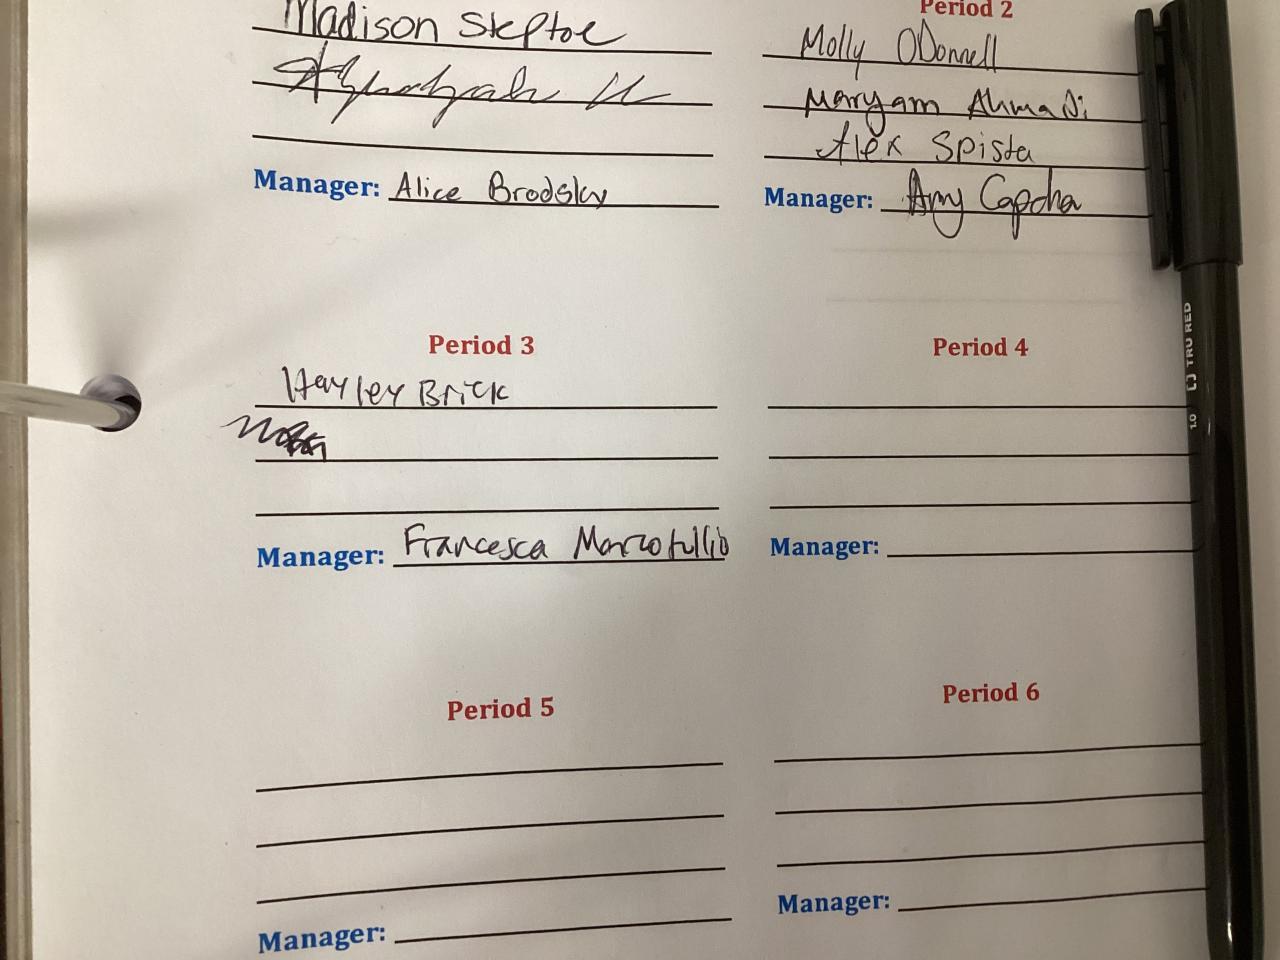 Madison Skeptoe
Period 2
Molly ODonnell
Maryam Ahmadi
Alex Spista
Manager: Alice Brodsky
Manager: Amy Capcha
Period 3
Hayley Brick
Manager: Francesca Marcotullio
Period 4
Manager:
Period 5
Manager:
Period 6
Manager:
TRU RED
1.0